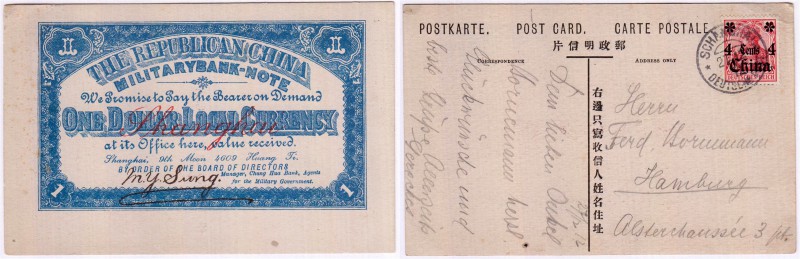 II
II
THE REPUBLICAN CHINA
MILITARY BANK-NOTE
We Promise to Pay the Bearer on Demand
ONE DOLLAR LOCAL CURRENCY
Shanghai
at its Office here, value received.
Shanghai, 9th Moon 4609 Huang Ti.
BY ORDER OF THE BOARD OF DIRECTORS
M.Y. Sung.
Manager, Chung Hua Bank, Agents
for the Military Government.
1
1
POSTKARTE. POST CARD. CARTE POSTALE
片信明政郵
CORRESPONDENCE
ADDRESS ONLY
右邊只寫收信人姓名住址
Dem lieben Onkel
Vornemann herzl
Glückwünsche und
beste Grüße
SCH
DEUTSCHE
4 Cents 4
China
Herrn
Ferd. Vornemann
Hamburg
Alsterchaussée 3 ptr.